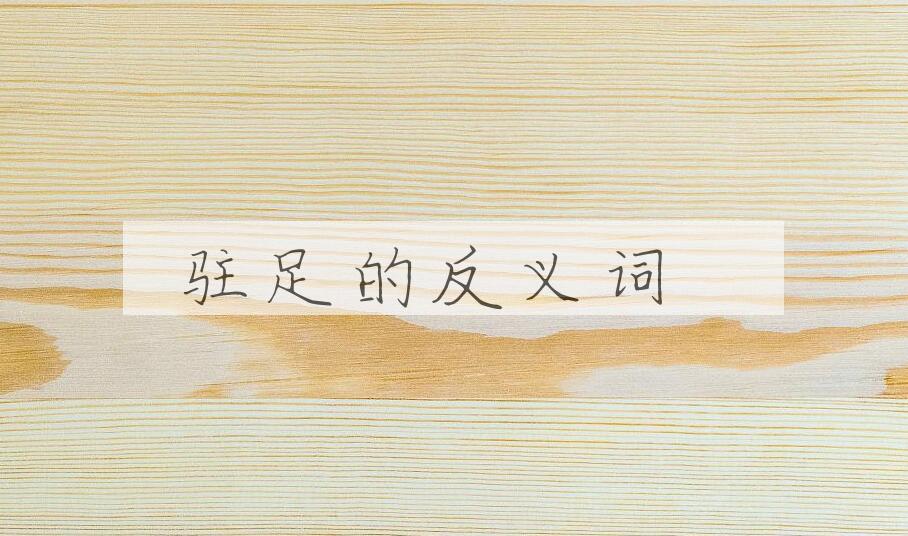 驻足的反义词